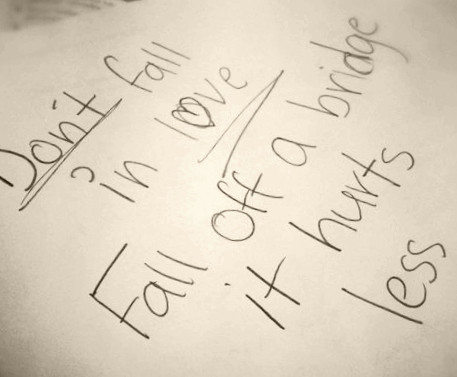 Don't fall
in love
Fall off a bridge
it hurts
less